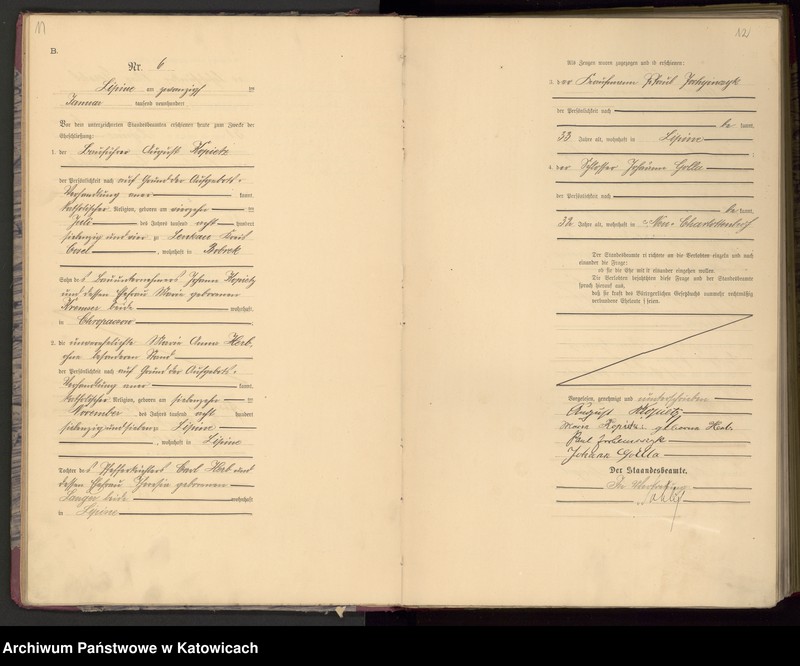 11
B.
Nr. 6
Lipine am zwanzigsten
Januar tausend neunhundert
Vor dem unterzeichneten Standesbeamten erschienen heute zum Zwecke der
Eheschließung:
1. der Bauführer August Kopietz
der Persönlichkeit nach auf Grund der Aufgebots-
Verhandlung aner kannt,
katholischer Religion, geboren am vierzehn ten
Juli des Jahres tausend acht hundert
siebenzig und vier zu Kreis
Cosel, wohnhaft in Bobrek
Sohn des Bauunternehmers Johann Kopietz
und dessen Ehefrau Marie geborenen
Kremser beide wohnhaft
in Chropaczow
2. die unverehelichte Marie Anna Herb,
ohne besonderen Stand
der Persönlichkeit nach auf Grund der Aufgebots-
Verhandlung aner kannt,
katholischer Religion, geboren am siebenzehn ten
November des Jahres tausend acht hundert
siebenzig und sieben zu Lipine
, wohnhaft in Lipine
Tochter des Pfefferküchlers Carl Herb und
dessen Ehefrau geborenen
Langer beide wohnhaft
in Lipine
12
Als Zeugen waren zugezogen und erschienen:
3. der Kaufmann Paul
der Persönlichkeit nach
be kannt,
53 Jahre alt, wohnhaft in Lipine
4. der Schlosser Johann Golla
der Persönlichkeit nach
be kannt,
32 Jahre alt, wohnhaft in Neu-Charlottenhof
Der Standesbeamte richtete an die Verlobten einzeln und nach
einander die Frage:
ob sie die Ehe mit einander eingehen wollen.
Die Verlobten bejahten diese Frage und der Standesbeamte
sprach hierauf aus,
daß sie kraft des Bürgerlichen Gesetzbuchs nunmehr rechtmäßig
verbundene Eheleute seien.
Vorgelesen, genehmigt und unterschrieben
August Kopietz
Marie Kopietz geborene Herb
Paul
Johann Golla
Der Standesbeamte.
In Vertretung
Archiwum Państwowe w Katowicach